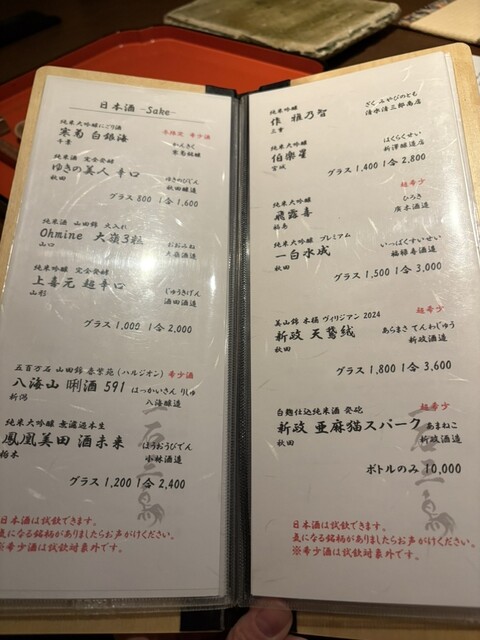 日本酒 -Sake-
純米大吟醸にごり酒 冬限定 希少酒
寒菊 白銀海 かんきく
千葉 寒菊銘醸
純米酒 完全発酵
ゆきの美人 辛口 ゆきのびじん
秋田 秋田醸造
グラス 800 1合 1,600
純米酒 山田錦 火入れ
Ohmine 大嶺3粒 おおみね
山口 大嶺酒造
純米吟醸 完全発酵
上喜元 超辛口 じょうきげん
山形 酒田酒造
グラス 1,000 1合 2,000
五百万石 山田錦 春紫苑 (ハルジオン) 希少酒
八海山 唎酒 591 はっかいさん りしゅ
新潟 八海醸造
純米大吟醸 無濾過本生
鳳凰美田 酒未来 ほうおうびでん
栃木 小林酒造
グラス 1,200 1合 2,400
日本酒は試飲できます。
気になる銘柄がありましたらお声がけください。
※希少酒は試飲対象外です。
純米吟醸
作 雅乃智 ざく みやびのとも
三重 清水清三郎商店
純米大吟醸
伯楽星 はくらくせい
宮城 新澤醸造店
グラス 1,400 1合 2,800
純米大吟醸 超希少
飛露喜 ひろき
福島 廣木酒造
純米大吟醸 プレミアム
一白水成 いっぱくすいせい
秋田 福禄寿酒造
グラス 1,500 1合 3,000
美山錦 木桶 ヴィリジアン 2024 超希少
新政 天鷲絨 あらまさ てんわじゅう
秋田 新政酒造
グラス 1,800 1合 3,600
白麹仕込純米酒 発砲 超希少
新政 亜麻猫スパーク あまねこ
秋田 新政酒造
ボトルのみ 10,000
日本酒は試飲できます。
気になる銘柄がありましたらお声がけください。
※希少酒は試飲対象外です。